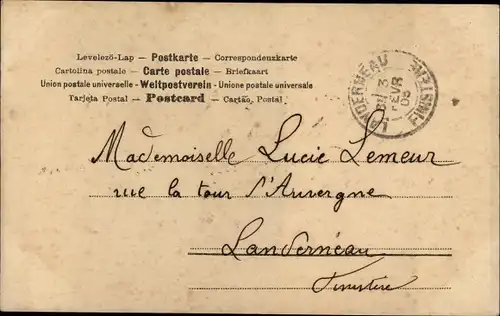 Levelező-Lap — Postkarte — Correspondenzkarte
Cartolina postale — Carte postale — Briefkaart
Union postale universelle - Weltpostverein - Unione postale universale
Tarjeta Postal — Postcard — Cartão Postal
LANDERNEAU
FINISTERE
3
FEVR
05
Mademoiselle Lucie Lemeur
rue la tour d'Auvergne
Landerneau
Finistère